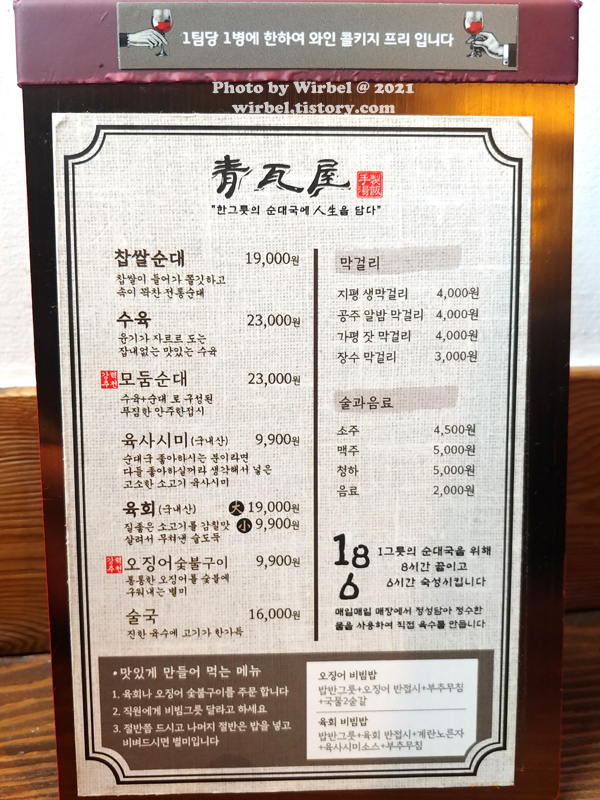 1팀당 1병에 한하여 와인 콜키지 프리 입니다
Photo by Wirbel @ 2021
wirbel.tistory.com
青瓦屋 手製湯飯
"한그릇의 순대국에 人生을 담다"
찹쌀순대 19,000원
찹쌀이 들어가 쫄깃하고
속이 꽉찬 전통순대
수육 23,000원
윤기가 자르르 도는
잡내없는 맛있는 수육
강력추천 모둠순대 23,000원
수육+순대 로 구성된
푸짐한 안주한접시
육사시미(국내산) 9,900원
순대국 좋아하시는 분이라면
다들 좋아하실꺼라 생각해서 넣은
고소한 소고기 육사시미
육회(국내산) 大 19,000원
질좋은 소고기를 감칠맛 小 9,900원
살려서 무쳐낸 술도둑
강력추천 오징어숯불구이 9,900원
통통한 오징어를 숯불에
구워내는 별미
술국 16,000원
진한 육수에 고기가 한가득
막걸리
지평 생막걸리 4,000원
공주 알밤 막걸리 4,000원
가평 잣 막걸리 4,000원
장수 막걸리 3,000원
술과음료
소주 4,500원
맥주 5,000원
청하 5,000원
음료 2,000원
186
1그릇의 순대국을 위해
8시간 끓이고
6시간 숙성시킵니다
매일매일 매장에서 정성담아 정수한
물을 사용하여 직접 육수를 만듭니다
•맛있게 만들어 먹는 메뉴
1. 육회나 오징어 숯불구이를 주문 합니다
2. 직원에게 비빔그릇 달라고 하세요
3. 절반쯤 드시고 나머지 절반은 밥을 넣고
비벼드시면 별미입니다
오징어 비빔밥
밥반그릇+오징어 반접시+부추무침
+국물2숟갈
육회 비빔밥
밥반그릇+육회 반접시+계란노른자
+육사시미소스+부추무침